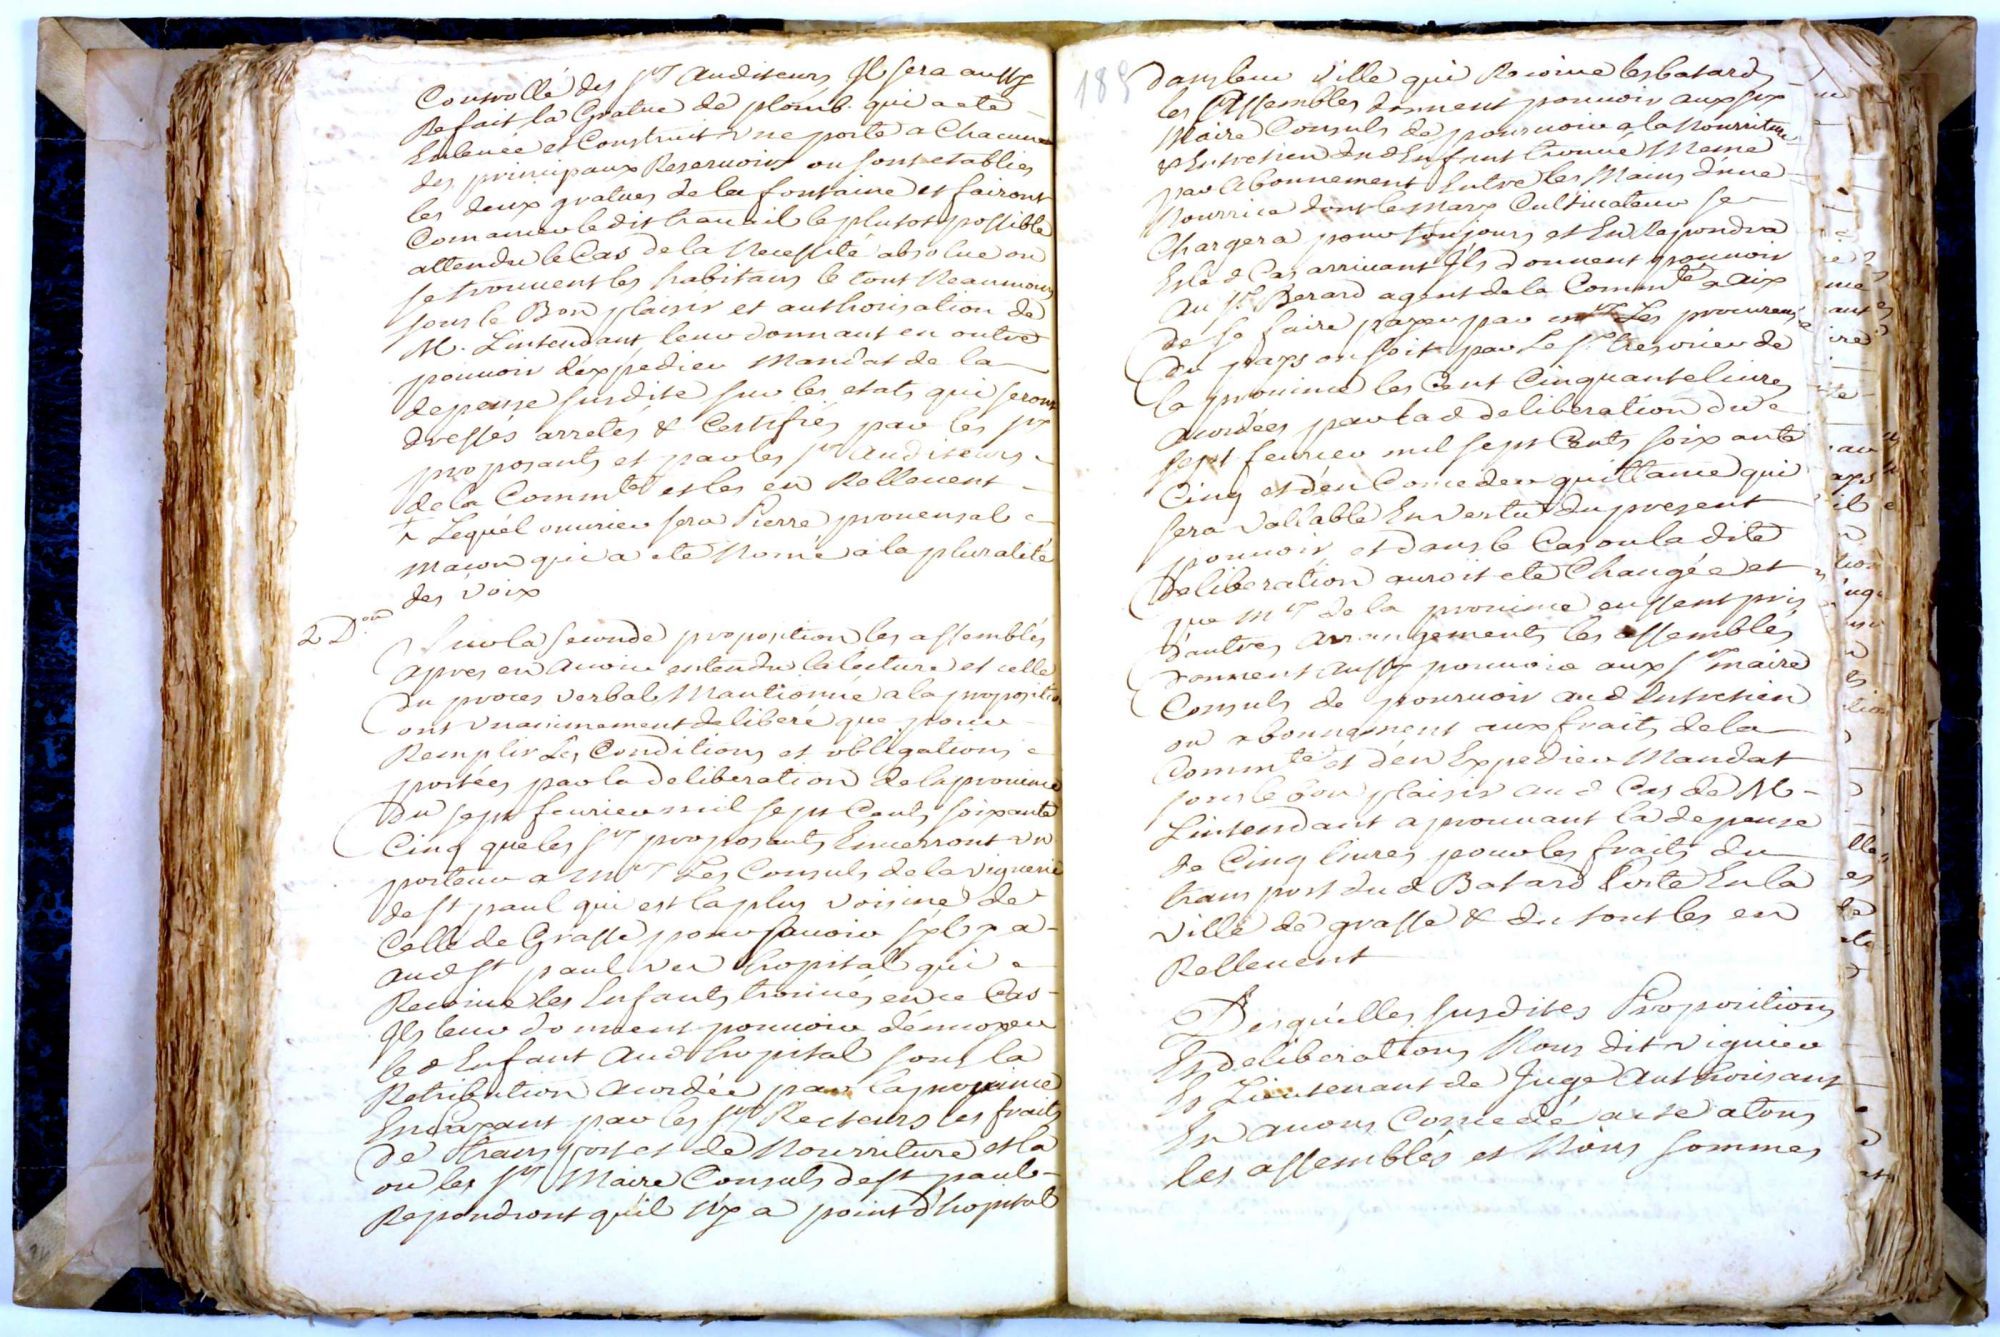 Controllé des srs auditeurs Il sera aussy
Refait la Gratue de plomb qui a ete
Enlevée et Construit une porte a Chacune
des principaux Reservoirs ou sont etablies
les deux gratues de la fontaine et fairont
Comancer ledit travail le plutot possible
attendu le Cas de la Necessité absolue ou
se trouvent les habitans le tout Neanmoins
sous le Bon plaisir et authorisation de
M. Lintendant leur donnant en outre
pouvoir d'éxpédier Mandat de la
depense susdite sur les etats qui seront
dressés arretés & Certifiés par les srs
proposants et par les srs auditeurs
de la Commté et les en Rellevent
+ Lequél ouvrier sera Pierre provensal
maçon qui a ete Nomé a la pluralité
des voix
2 Don
Sur la seconde proposition les assemblés
apres en avoir entendu la lecture et celle
du procès verbal Mantionné a la proposition
ont unanimement deliberé que pour
Remplir Les Conditions et obligations
portées par la deliberation de la province
du sept fevrier mil sept Cents soixante
Cinq que les srs proposants Enverront un
porteur a mrs Les Consuls de la viguerie
de st paul qui est la plus voisine de
Celle de Grasse pour savoir s'il y a
aud st paul un hopital qui
Recoive les Enfants trouvés en ce Cas
Ils leur donnent pouvoir d'énvoyer
le d Enfant aud hopital sous la
Retribution acordée par la province
En payant par les srs Recteurs les frais
de transport et de Nourriture et la
ou les srs Maire Consuls de st paul
Repondront qu'il n'y a point d'hopital
189
dans leur ville qui Recoive les batards
les Assemblés donnent pouvoir aux srs
Maire Consuls de pourvoir a la Nourriture
& Entretien dud Enfant trouvé Meme
par Abonnement Entre les Mains d'une
Nourrice dont le Mary Cultivateur se
Chargera pour toujours et En Repondra
Et le d Cas arrivant Ils donnent pouvoir
au sr Berard agent de la Commté a aix
de se faire payer par mrs Les procureurs
du pays ou soit par Le sr tresorier de
la province les Cent Cinquante livres
acordées par lad deliberation du
sept fevrier mil sept Cents soixante
Cinq et d'én Conceder quittance qui
sera vallable En vertu du present
pouvoir et dans le Cas ou la dite
deliberation auroit ete Changée et
que mrs de la province eussent pris
d'autres arrangements les assemblés
donnent aussy pouvoir aux srs maire
Consuls de pourvoir aud Entretien
ou abonnement aux frais de la
Commté et d'én Expedier Mandat
sous le bon plaisir aud Cas de M.
Lintendant aprouvant la depense
de Cinq livres pour les frais du
transport dud Batard Porté En la
ville de grasse & du tout les en
Rellevent
Desquélles susdites Propositions
Et deliberations Nous dit viguier
Et Lieutenant de Juge Authorisant
En avons Concedé acte a tous
les assemblés et Nous sommes